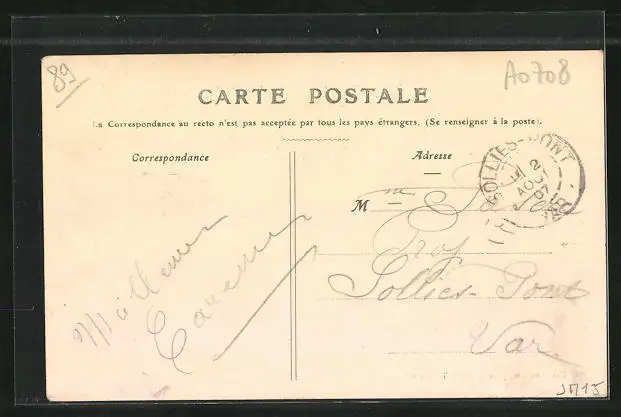 89
A0708
CARTE POSTALE
La Correspondance au recto n'est pas acceptée par tous les pays étrangers. (Se renseigner à la poste).
Correspondance
Adresse
SOLLIÈS-PONT
2
AOUT
07
VAR
Mme
Prop
Solliès-Pont
Var
JM15